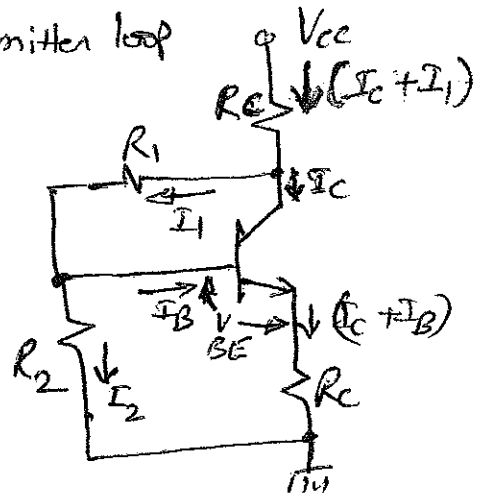 mitter loop
VCC
RC
(IC + I1)
R1
IC
I1
IB
VBE
(IC + IB)
R2
I2
RC